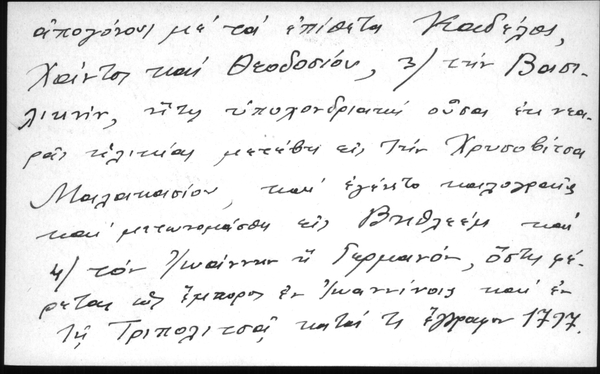 ἀπογόνους μέ τά ἐπίθετα Καδέλας,
Χαίντος καί Θεοδοσίου, 3/ τήν Βασι-
λικήν, ἥτις ὑποχονδριακή οὖσα ἐκ νεα-
ρᾶς ἡλικίας μετέβη εἰς τήν Χρυσοβίτσα
Μαλακασίου, καί ἐγένετο καλογραῖα
καί μετωνομάσθη εἰς Βηθλεέμ καί
4/ τόν Ἰωάννην ἤ Γερμανόν, ὅστις φέ-
ρεται ὡς ἔμπορος ἐν Ἰωαννίνοις καί ἐν
τῇ Τριπολιτσᾷ κατά τι ἔγγραφον